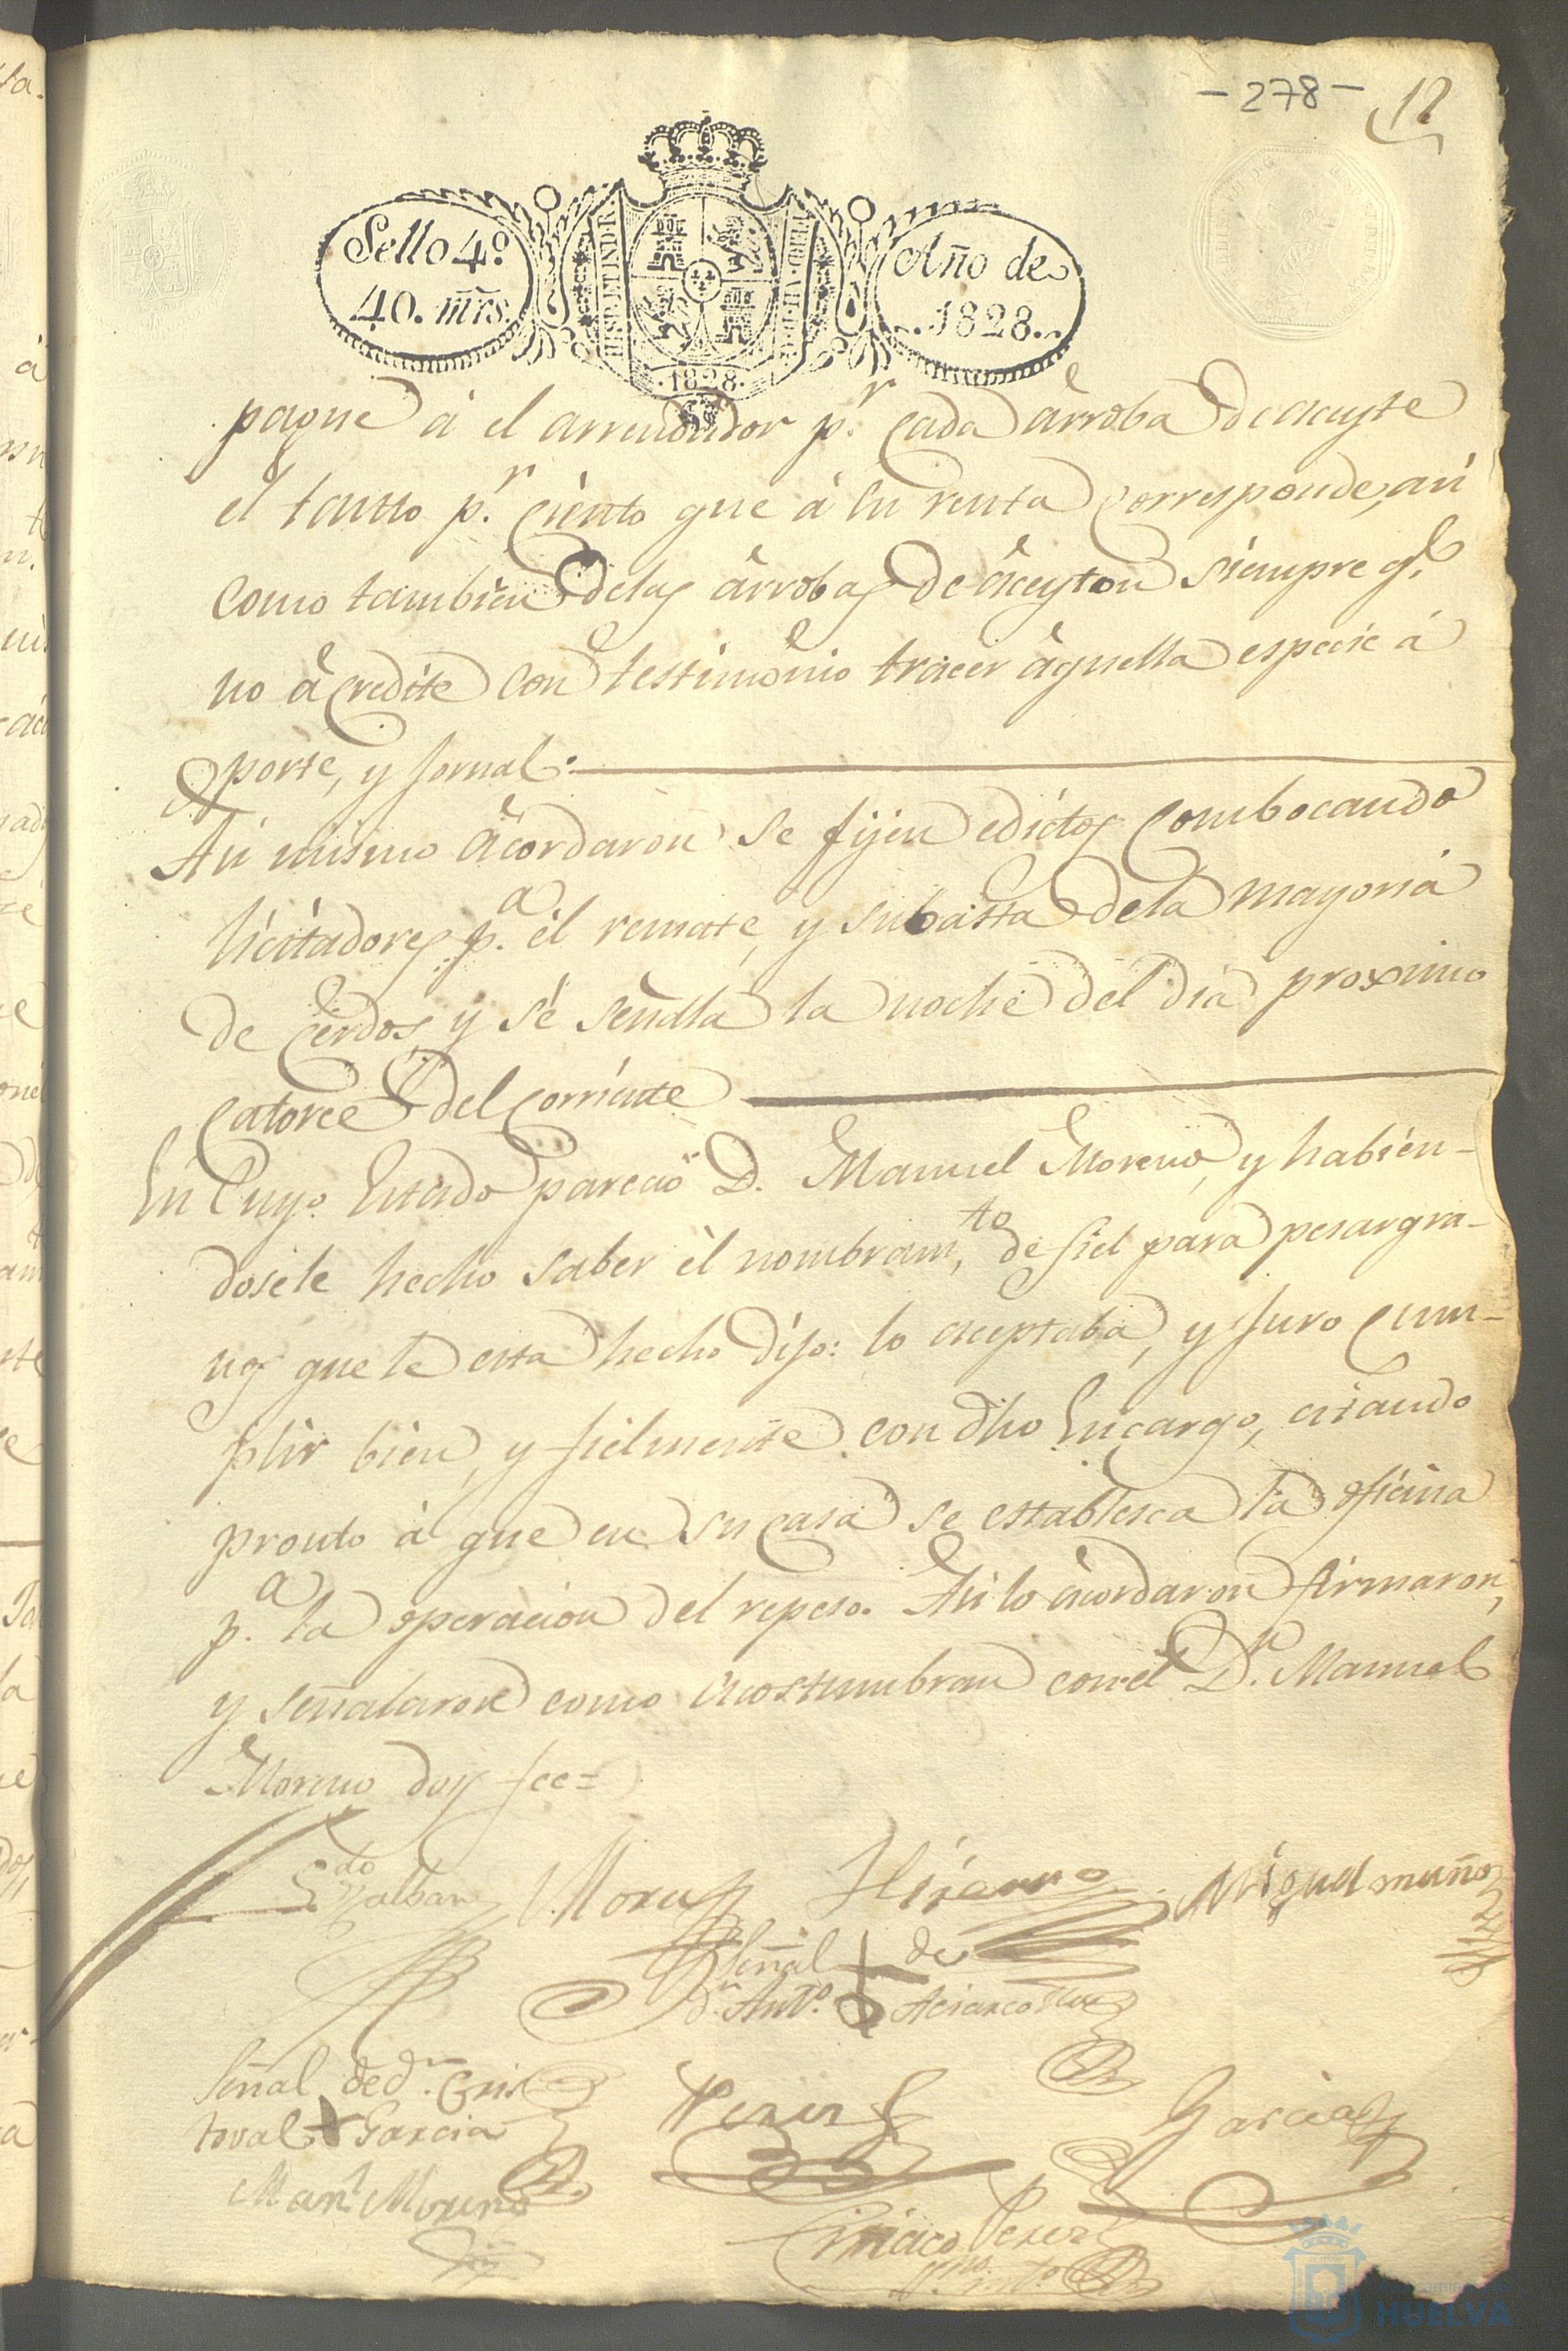 -278- 12
Sello 4º.
40. mrs.
HISP. ET IND. R
FERD. VII. D. G.
1828.
Año de
1828.
pague à el arrendador p.r cada àrroba de aceyte
el tantto p.r ciento que à su renta corresponde, asi
como tambien delas àrrobas de àceyton siempre q.e
no àcredite con testimonio traeer àquella especie á
porte, y Jornal.
Asi mismo àcordaron se fijen edictos combocando
licitadores p.a èl remate, y subasta dela mayoria
de cerdos, y sé señala la noche del dia proximo
catorce del corriente
En cuyo estado pareció D. Manuel Moreno, y habien-
dosele hecho saber èl nombram.to de fiel para pesar gra-
nos que le esta hecho Dijo: lo aceptaba, y Juro cum-
plir bien, y fielmente con dho Encargo, estando
pronto à que en su casa se establesca la oficina
p.a la operacion del repeso. Asi lo àcordaron firmaron,
y señalaron como acostumbran con el D.n Manuel
Moreno doy fee=
Galban Mora Miguel muños
Señal de
d.n Ant.o
Señal de d.n Cris
toval Garcia Perez Garcia
Man.l Moreno
Ciriaco Perez
HUELVA